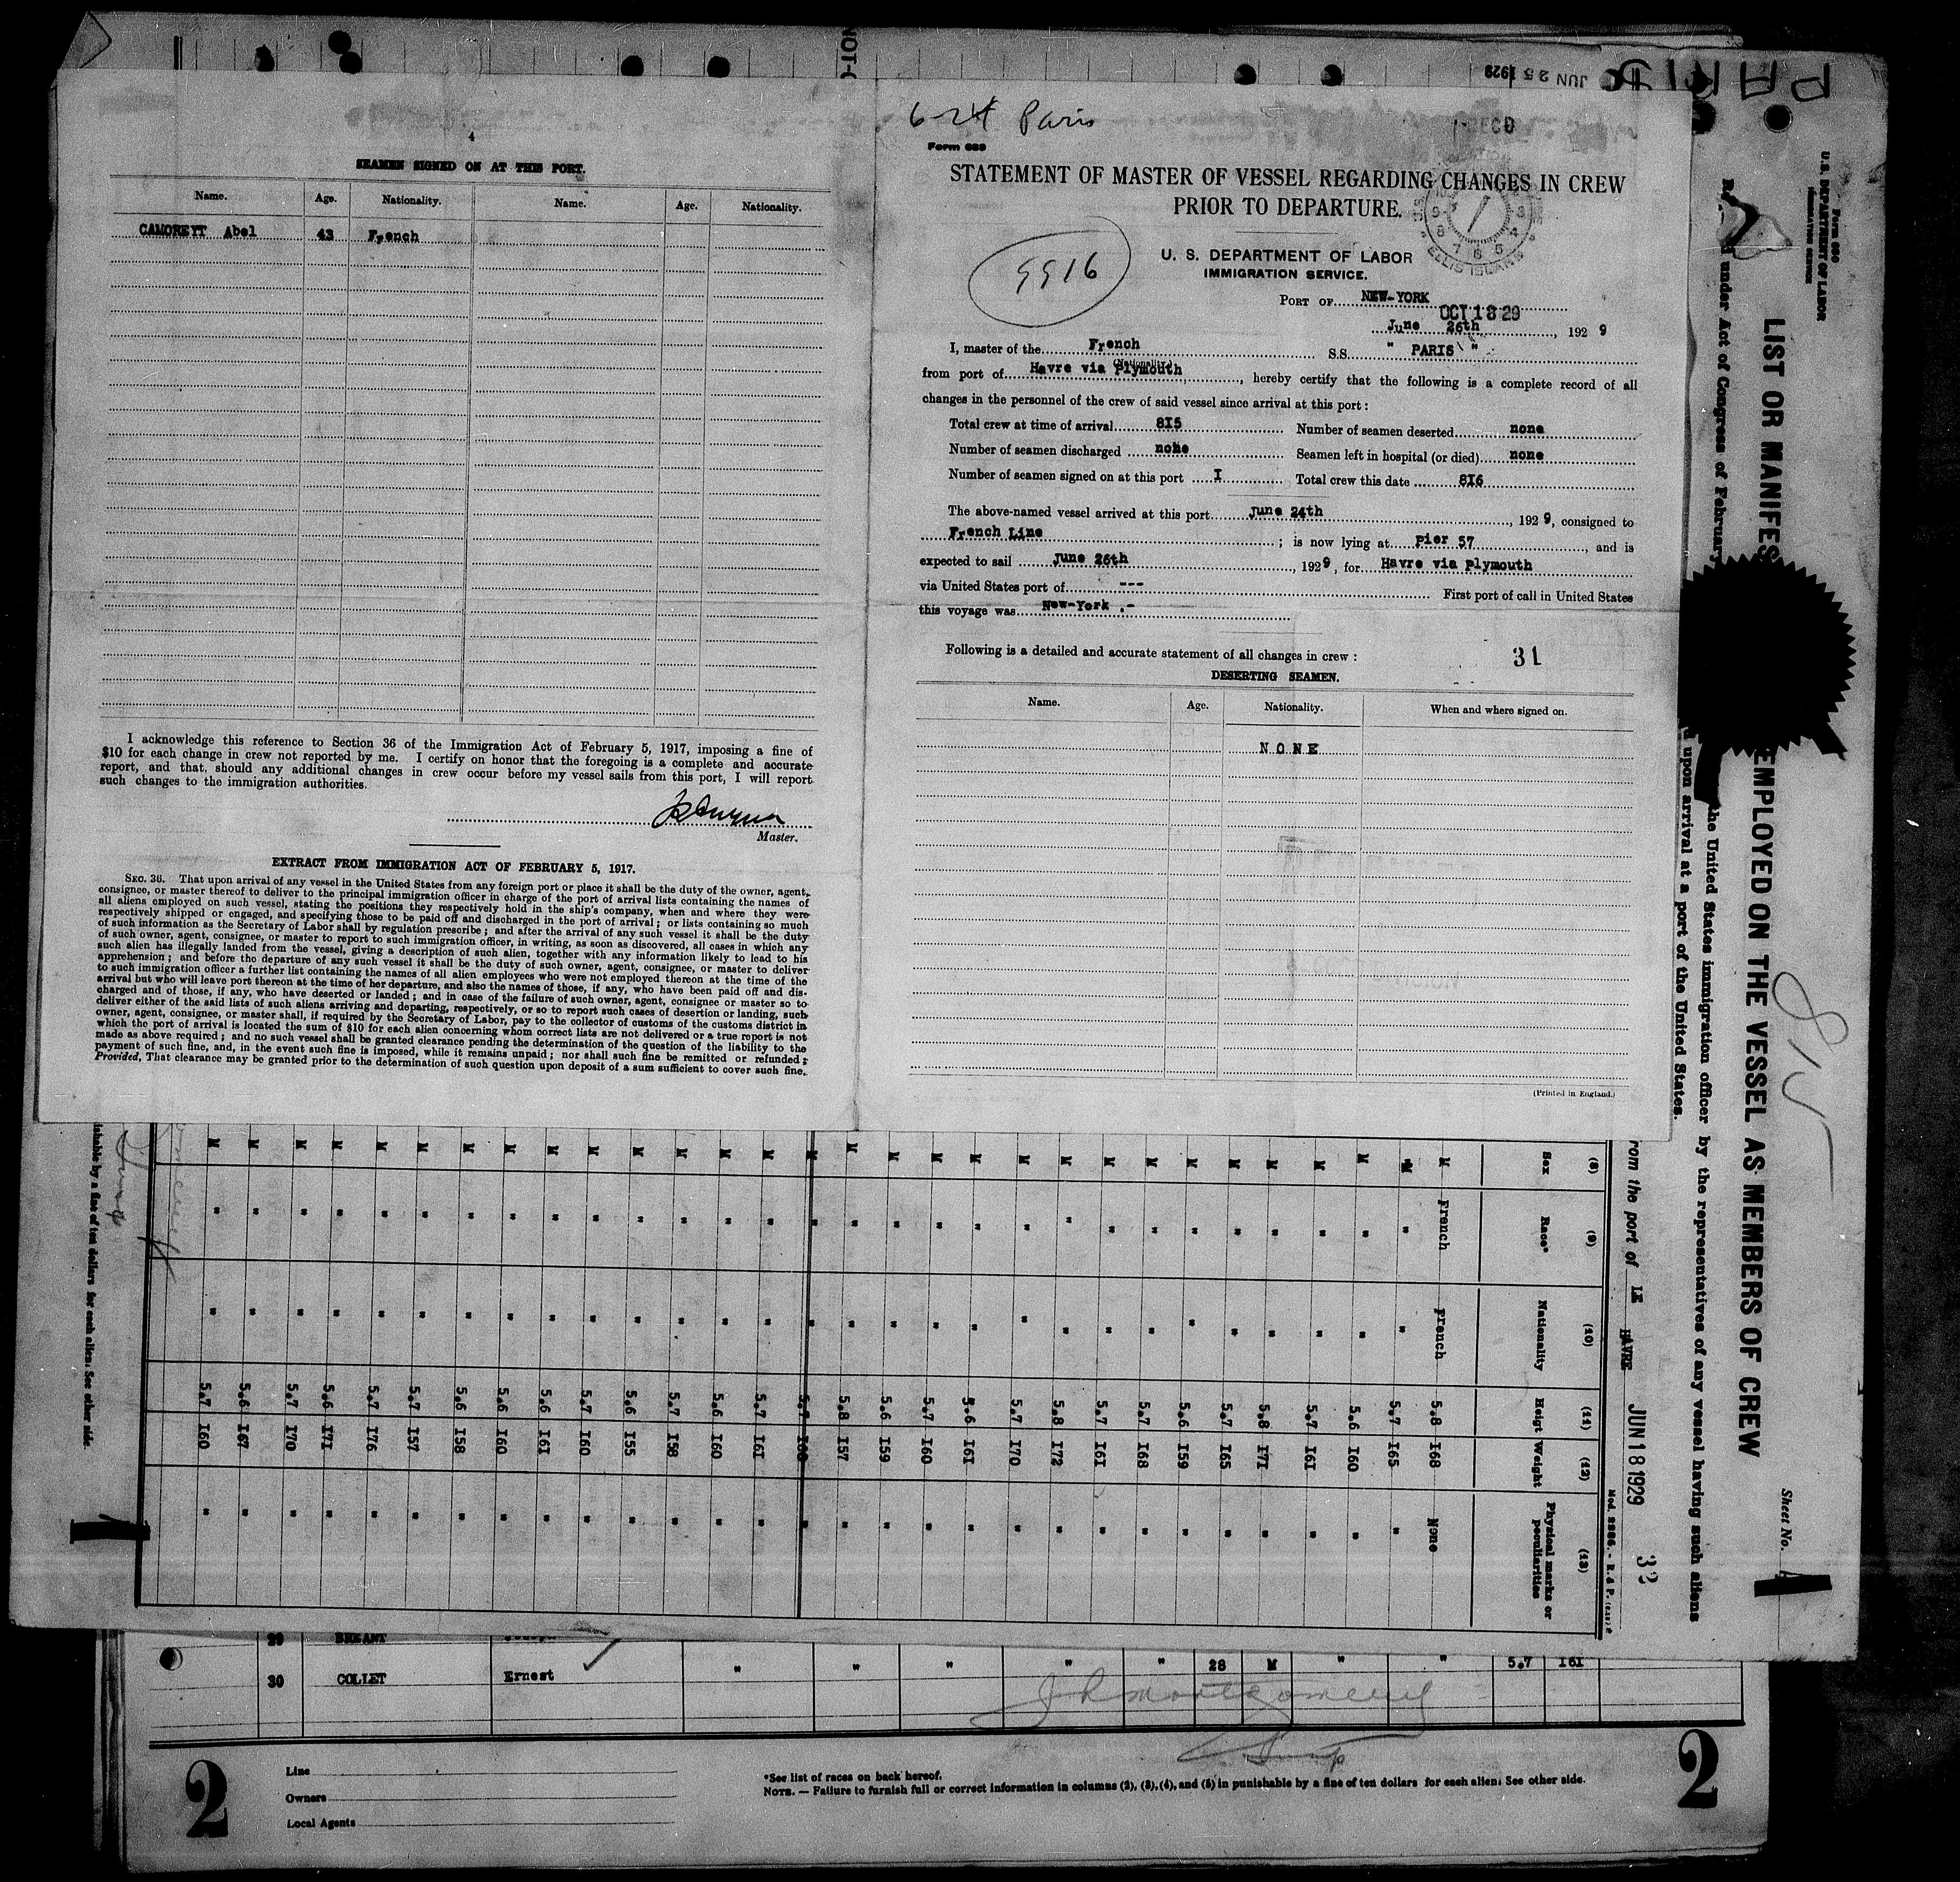 NOT-
JUN 25 1929
PARIS
4
SEAMEN SIGNED ON AT THIS PORT.
Name. Age. Nationality. Name. Age. Nationality.
CAMOREYT Abel 43 French
I acknowledge this reference to Section 36 of the Immigration Act of February 5, 1917, imposing a fine of
$10 for each change in crew not reported by me. I certify on honor that the foregoing is a complete and accurate
report, and that, should any additional changes in crew occur before my vessel sails from this port, I will report
such changes to the immigration authorities.
Master.
EXTRACT FROM IMMIGRATION ACT OF FEBRUARY 5, 1917.
SEC. 36. That upon arrival of any vessel in the United States from any foreign port or place it shall be the duty of the owner, agent,
consignee, or master thereof to deliver to the principal immigration officer in charge of the port of arrival lists containing the names of
all aliens employed on such vessel, stating the positions they respectively hold in the ship's company, when and where they were
respectively shipped or engaged, and specifying those to be paid off and discharged in the port of arrival; or lists containing so much
of such information as the Secretary of Labor shall by regulation prescribe; and after the arrival of any such vessel it shall be the duty
of such owner, agent, consignee, or master to report to such immigration officer, in writing, as soon as discovered, all cases in which any
such alien has illegally landed from the vessel, giving a description of such alien, together with any information likely to lead to his
apprehension; and before the departure of any such vessel it shall be the duty of such owner, agent, consignee, or master to deliver
to such immigration officer a further list containing the names of all alien employees who were not employed thereon at the time of the
arrival but who will leave port thereon at the time of her departure, and also the names of those, if any, who have been paid off and dis-
charged and of those, if any, who have deserted or landed; and in case of the failure of such owner, agent, consignee or master so to
deliver either of the said lists of such aliens arriving and departing, respectively, or so to report such cases of desertion or landing, such
owner, agent, consignee, or master shall, if required by the Secretary of Labor, pay to the collector of customs of the customs district in
which the port of arrival is located the sum of $10 for each alien concerning whom correct lists are not delivered or a true report is not
made as above required; and no such vessel shall be granted clearance pending the determination of the question of the liability to the
payment of such fine, and, in the event such fine is imposed, while it remains unpaid; nor shall such fine be remitted or refunded;
Provided, That clearance may be granted prior to the determination of such question upon deposit of a sum sufficient to cover such fine.
6-24 Paris
Form 689
STATEMENT OF MASTER OF VESSEL REGARDING CHANGES IN CREW
PRIOR TO DEPARTURE.
ELLIS ISLAND
9916
U. S. DEPARTMENT OF LABOR
IMMIGRATION SERVICE.
PORT OF NEW-YORK
OCT 18 29
June 26th, 1929
I, master of the French S.S. " PARIS "
(Nationality.)
from port of Havre via Plymouth, hereby certify that the following is a complete record of all
changes in the personnel of the crew of said vessel since arrival at this port:
Total crew at time of arrival 8I5 Number of seamen deserted none
Number of seamen discharged none Seamen left in hospital (or died) none
Number of seamen signed on at this port I Total crew this date 8I6
The above-named vessel arrived at this port June 24th, 1929, consigned to
French Line; is now lying at Pier 57, and is
expected to sail June 26th, 1929, for Havre via Plymouth
via United States port of --- First port of call in United States
this voyage was New-York .-
Following is a detailed and accurate statement of all changes in crew:
31
DESERTING SEAMEN.
Name. Age. Nationality. When and where signed on.
NONE
(Printed in England.)
Form 680
U.S. DEPARTMENT OF LABOR
IMMIGRATION SERVICE
LIST OR MANIFES
EMPLOYED ON THE VESSEL AS MEMBERS OF CREW
under Act of Congress of February
the United States immigration officer by the representatives of any vessel having such aliens
upon arrival at a port of the United States.
Sheet No.
815
rom the port of LE HAVRE JUN 18 1929
Mod. 2286. - R. & P.
(8) (9) (10) (11) (12) (13)
Sex Race* Nationality Heigt Weight Physical marks or peculiarities
M French French 5.8 I68 None
M " " 5.7 I65 "
M " " 5.6 I60 "
M " " 5.7 I6I "
M " " 5.8 I7I "
M " " 5.7 I65 "
M " " 5.6 I59 "
M " " 5.7 I68 "
M " " 5.7 I6I "
M " " 5.8 I72 "
M " " 5.7 I70 "
M " " 5.6 I6I "
M " " 5.7 I60 "
M " " 5.6 I59 "
M " " 5.8 I57 "
M " " 5.7 I60 "
M " " 5.7 I6I "
M " " 5.6 I60 "
M " " 5.7 I58 "
M " " 5.6 I55 "
M " " 5.7 I60 "
M " " 5.6 I6I "
M " " 5.6 I60 "
M " " 5.6 I58 "
M " " 5.7 I57 "
M " " 5.7 I76 "
M " " 5.6 I7I "
M " " 5.7 I70 "
M " " 5.6 I67 "
M " " 5.7 I60 "
ishable by a fine of ten dollars for each alien. See other side.
29 BREANT Joseph
30 COLLET Ernest " " " " " 28 M " " 5.7 I6I
J R Montgomery
2
Line
Owners
Local Agents
*See list of races on back hereof.
NOTE. — Failure to furnish full or correct information in columns (2), (3), (4), and (5) in punishable by a fine of ten dollars for each alien. See other side.
2